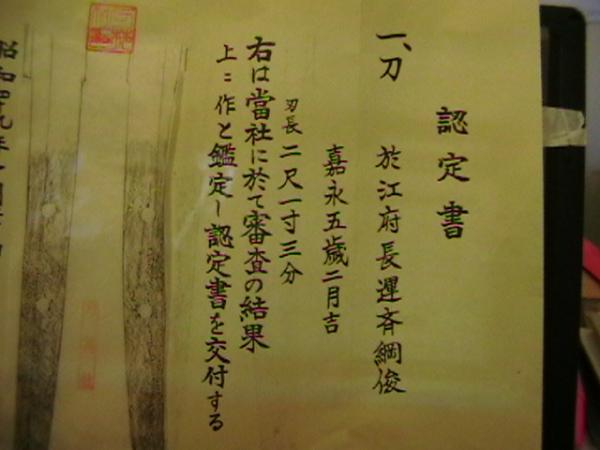 認定書
一、刀 於江府長運斉綱俊
嘉永五歳二月吉
刃長 二尺一寸三分
右は當社に於て審査の結果
上ニ作と鑑定し認定書を交付する
昭和四九年一月